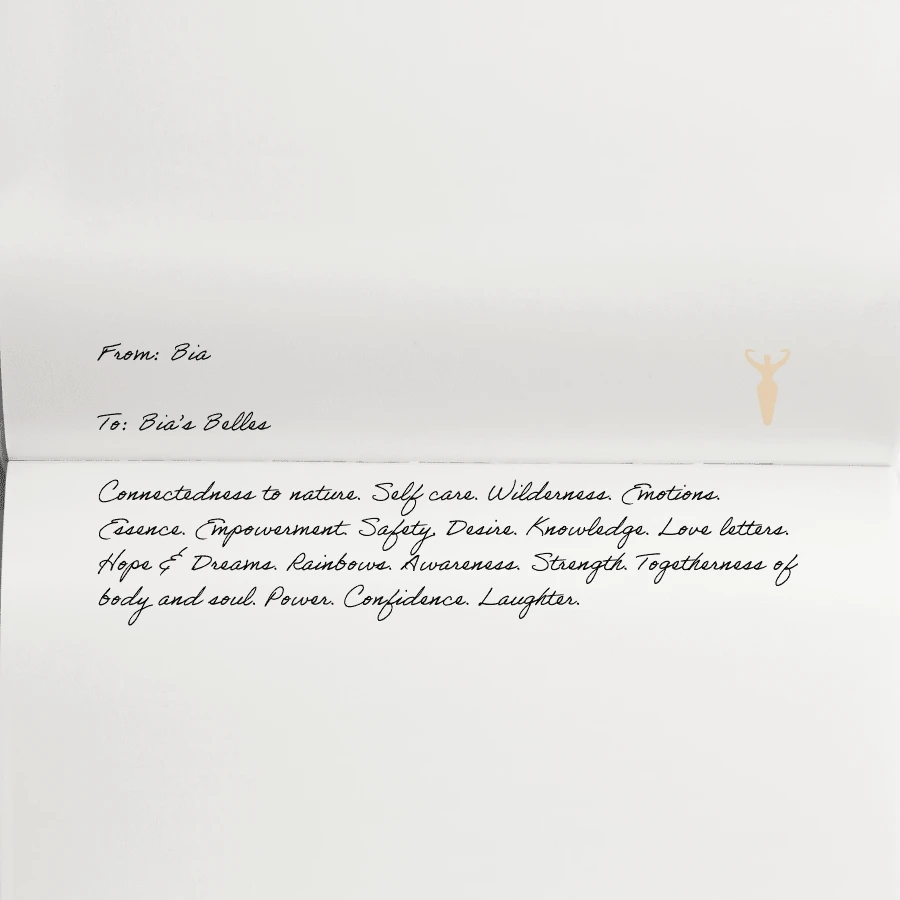 From: Bia
To: Bia's Belles
Connectedness to nature. Self care. Wilderness. Emotions.
Essence. Empowerment. Safety. Desire. Knowledge. Love letters.
Hope & Dreams. Rainbows. Awareness. Strength. Togetherness of
body and soul. Power. Confidence. Laughter.